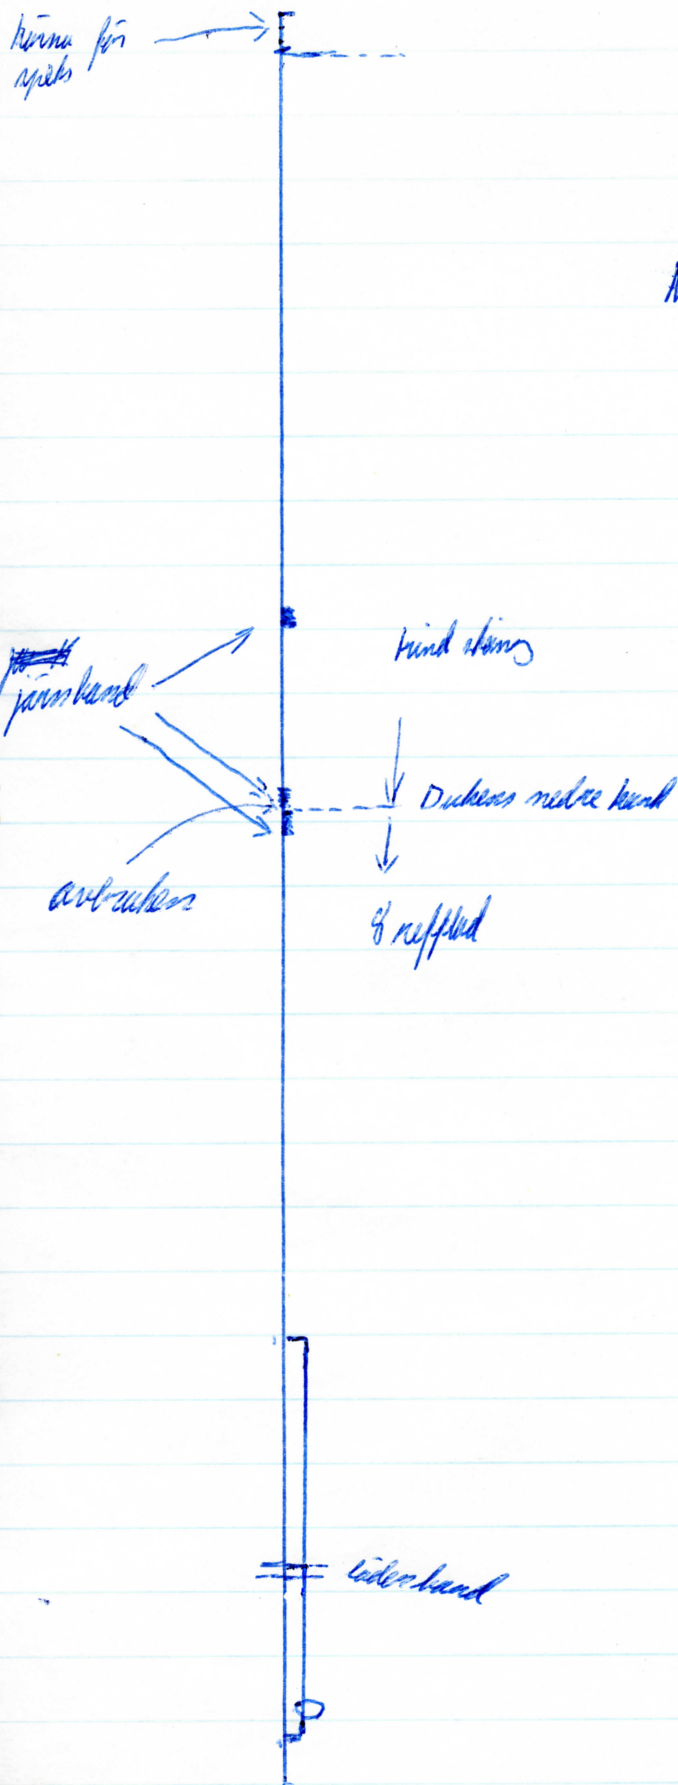 kärna för
spets
järnband
rund stång
Dukens nedre kant
avbruten
8 refflad
läderband